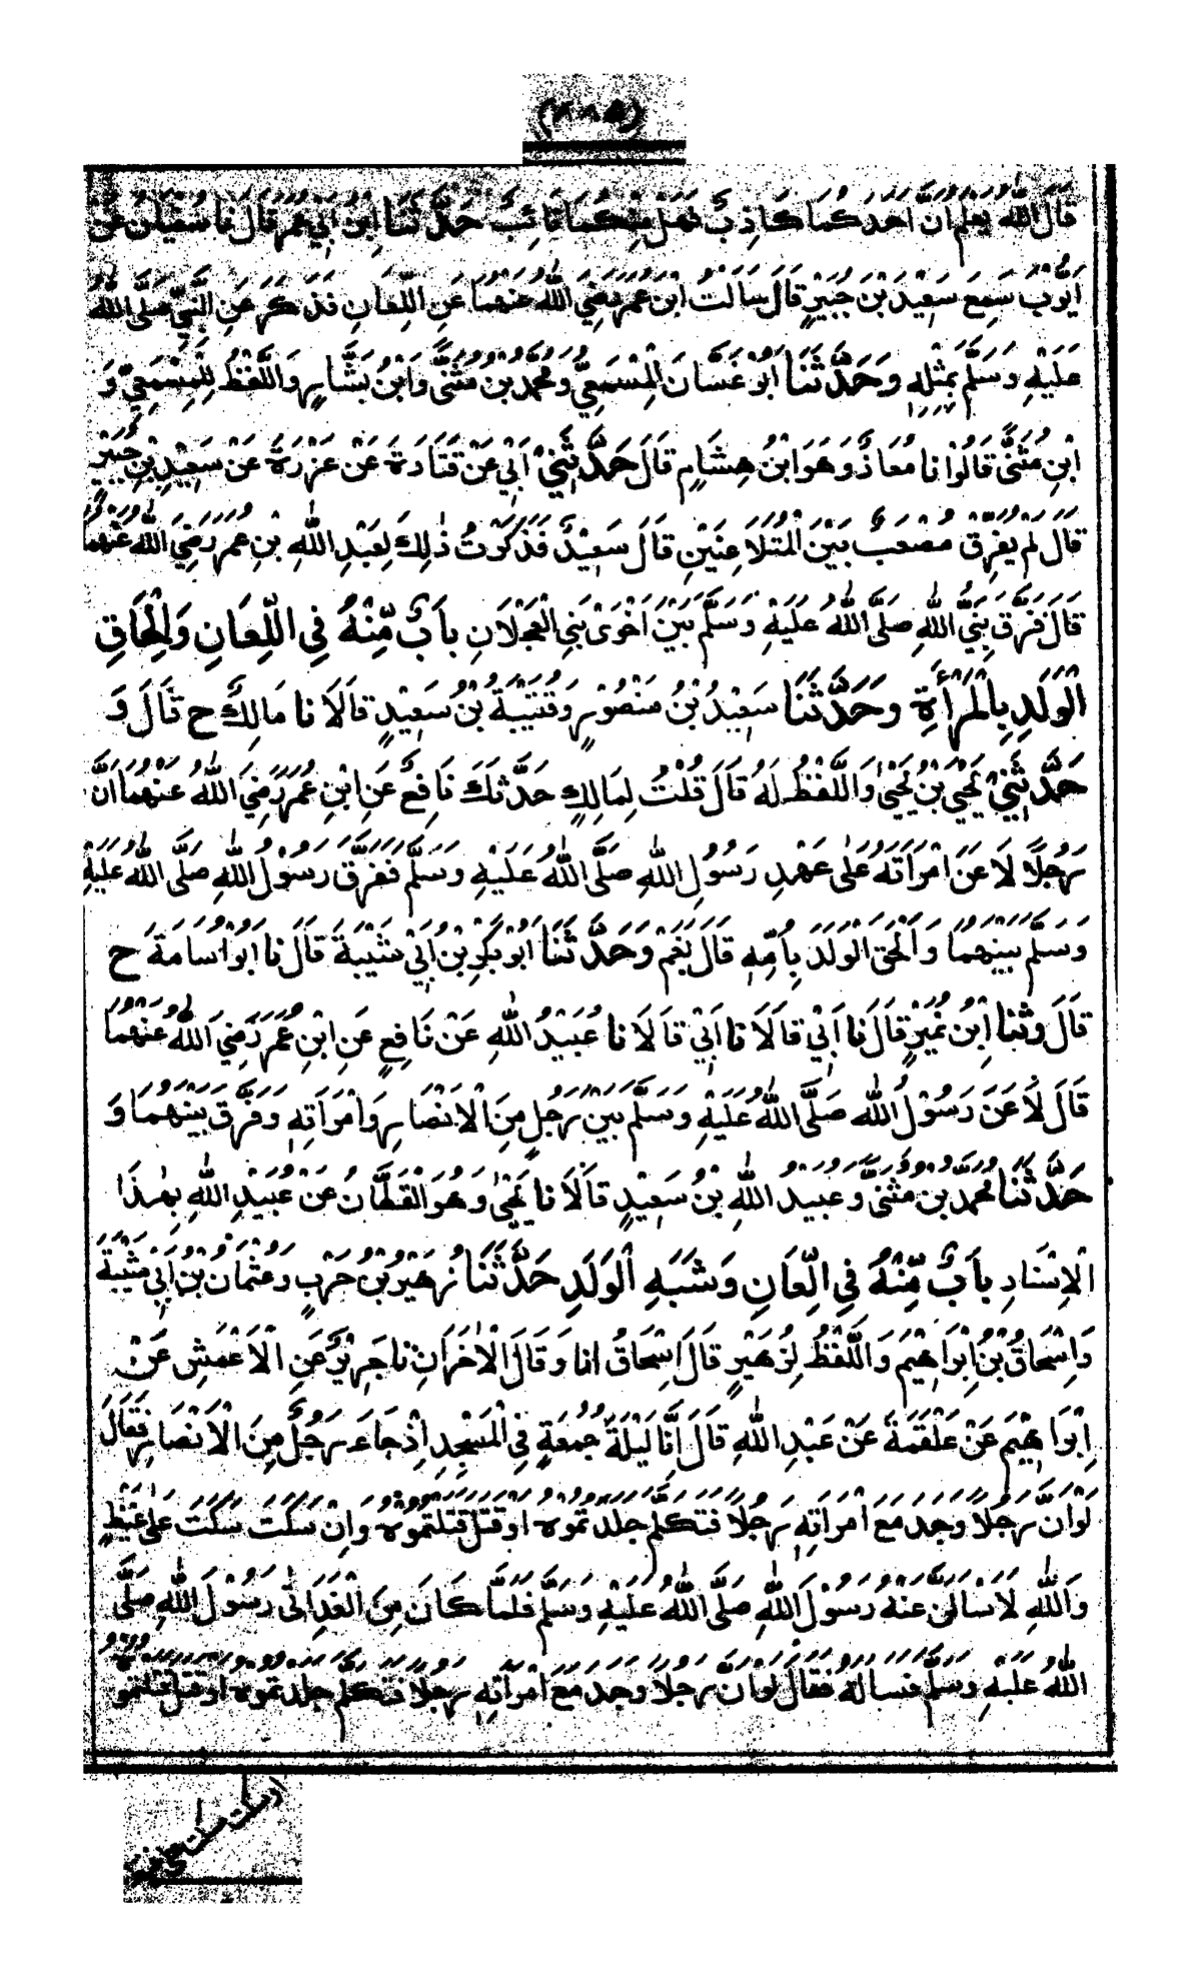 (٢٨٥)
قَالَ اللهُ يَعْلَمُ اَنَّ اَحَدَكُمَا كَاذِبٌ فَهَلْ مِنْكُمَا تَائِبٌ حَدَّثَنَا ابْنُ اَبِيْ عُمَرَ قَالَ نَا سُفْيَانُ عَنْ
اَيُّوْبَ سَمِعَ سَعِيْدَ بْنَ جُبَيْرٍ قَالَ سَاَلْتُ ابْنَ عُمَرَ رَضِيَ اللهُ عَنْهُمَا عَنِ اللِّعَانِ فَذَكَرَ عَنِ النَّبِيِّ صَلَّى اللهُ
عَلَيْهِ وَسَلَّمَ بِمِثْلِهِ وَحَدَّثَنَا اَبُوْ غَسَّانَ الْمِسْمَعِيُّ وَمُحَمَّدُ بْنُ مُثَنًّى وَابْنُ بَشَّارٍ وَاللَّفْظُ لِلْمِسْمَعِيِّ وَ
ابْنِ مُثَنًّى قَالُوْا نَا مُعَاذٌ وَهُوَ ابْنُ هِشَامٍ قَالَ حَدَّثَنِيْ اَبِيْ عَنْ قَتَادَةَ عَنْ عَزْرَةَ عَنْ سَعِيْدِ بْنِ جُبَيْرٍ
قَالَ لَمْ يُفَرِّقْ مُصْعَبٌ بَيْنَ الْمُتَلَاعِنَيْنِ قَالَ سَعِيْدٌ فَذَكَرْتُ ذٰلِكَ لِعَبْدِ اللهِ بْنِ عُمَرَ رَضِيَ اللهُ عَنْهُمَا
قَالَ فَرَّقَ نَبِيُّ اللهِ صَلَّى اللهُ عَلَيْهِ وَسَلَّمَ بَيْنَ اَخَوَيْ بَنِي الْعَجْلَانِ بَابٌ مِّنْهُ فِي اللِّعَانِ وَالْحَاقِ
الْوَلَدِ بِالْمَرْأَةِ وَحَدَّثَنَا سَعِيْدُ بْنُ مَنْصُوْرٍ وَقُتَيْبَةُ بْنُ سَعِيْدٍ قَالَا نَا مَالِكٌ ح قَالَ وَ
حَدَّثَنِيْ يَحْيَى بْنُ يَحْيٰى وَاللَّفْظُ لَهُ قَالَ قُلْتُ لِمَالِكٍ حَدَّثَكَ نَافِعٌ عَنِ ابْنِ عُمَرَ رَضِيَ اللهُ عَنْهُمَا اَنَّ
رَجُلًا لَاعَنَ امْرَاَتَهُ عَلٰى عَهْدِ رَسُوْلِ اللهِ صَلَّى اللهُ عَلَيْهِ وَسَلَّمَ فَفَرَّقَ رَسُوْلُ اللهِ صَلَّى اللهُ عَلَيْهِ
وَسَلَّمَ بَيْنَهُمَا وَاَلْحَقَ الْوَلَدَ بِاُمِّهِ قَالَ نَعَمْ وَحَدَّثَنَا اَبُوْ بَكْرِ بْنُ اَبِيْ شَيْبَةَ قَالَ نَا اَبُوْ اُسَامَةَ ح
قَالَ وَثَنَا ابْنُ نُمَيْرٍ قَالَ نَا اَبِيْ قَالَا نَا اَبِيْ قَالَا نَا عُبَيْدُ اللهِ عَنْ نَافِعٍ عَنِ ابْنِ عُمَرَ رَضِيَ اللهُ عَنْهُمَا
قَالَ لَاعَنَ رَسُوْلُ اللهِ صَلَّى اللهُ عَلَيْهِ وَسَلَّمَ بَيْنَ رَجُلٍ مِنَ الْاَنْصَارِ وَامْرَاَتِهِ وَفَرَّقَ بَيْنَهُمَا وَ
حَدَّثَنَا مُحَمَّدُ بْنُ مُثَنًّى وَعُبَيْدُ اللهِ بْنُ سَعِيْدٍ قَالَا نَا يَحْيٰى وَهُوَ الْقَطَّانُ عَنْ عُبَيْدِ اللهِ بِهٰذَا
الْاِسْنَادِ بَابٌ مِّنْهُ فِي اللِّعَانِ وَشَبَهِ الْوَلَدِ حَدَّثَنَا زُهَيْرُ بْنُ حَرْبٍ وَعُثْمَانُ بْنُ اَبِيْ شَيْبَةَ
وَاِسْحَاقُ بْنُ اِبْرَاهِيْمَ وَاللَّفْظُ لِزُهَيْرٍ قَالَ اِسْحَاقُ انا وَقَالَ الْاٰخَرَانِ نَا جَرِيْرٌ عَنِ الْاَعْمَشِ عَنْ
اِبْرَاهِيْمَ عَنْ عَلْقَمَةَ عَنْ عَبْدِ اللهِ قَالَ اِنَّا لَيْلَةَ جُمُعَةٍ فِي الْمَسْجِدِ اِذْ جَاءَ رَجُلٌ مِنَ الْاَنْصَارِ فَقَالَ
لَوْ اَنَّ رَجُلًا وَجَدَ مَعَ امْرَاَتِهِ رَجُلًا فَتَكَلَّمَ جَلَدْتُمُوْهُ اَوْ قَتَلَ قَتَلْتُمُوْهُ وَاِنْ سَكَتَ سَكَتَ عَلٰى غَيْظٍ
وَاللهِ لَاَسْاَلَنَّ عَنْهُ رَسُوْلَ اللهِ صَلَّى اللهُ عَلَيْهِ وَسَلَّمَ فَلَمَّا كَانَ مِنَ الْغَدِ اَتٰى رَسُوْلَ اللهِ صَلَّى
اللهُ عَلَيْهِ وَسَلَّمَ فَسَاَلَهُ فَقَالَ لَوْ اَنَّ رَجُلًا وَجَدَ مَعَ امْرَاَتِهِ رَجُلًا فَتَكَلَّمَ جَلَدْتُمُوْهُ اَوْ قَتَلَ قَتَلْتُمُوْ
اوسكت سكت على غيظ